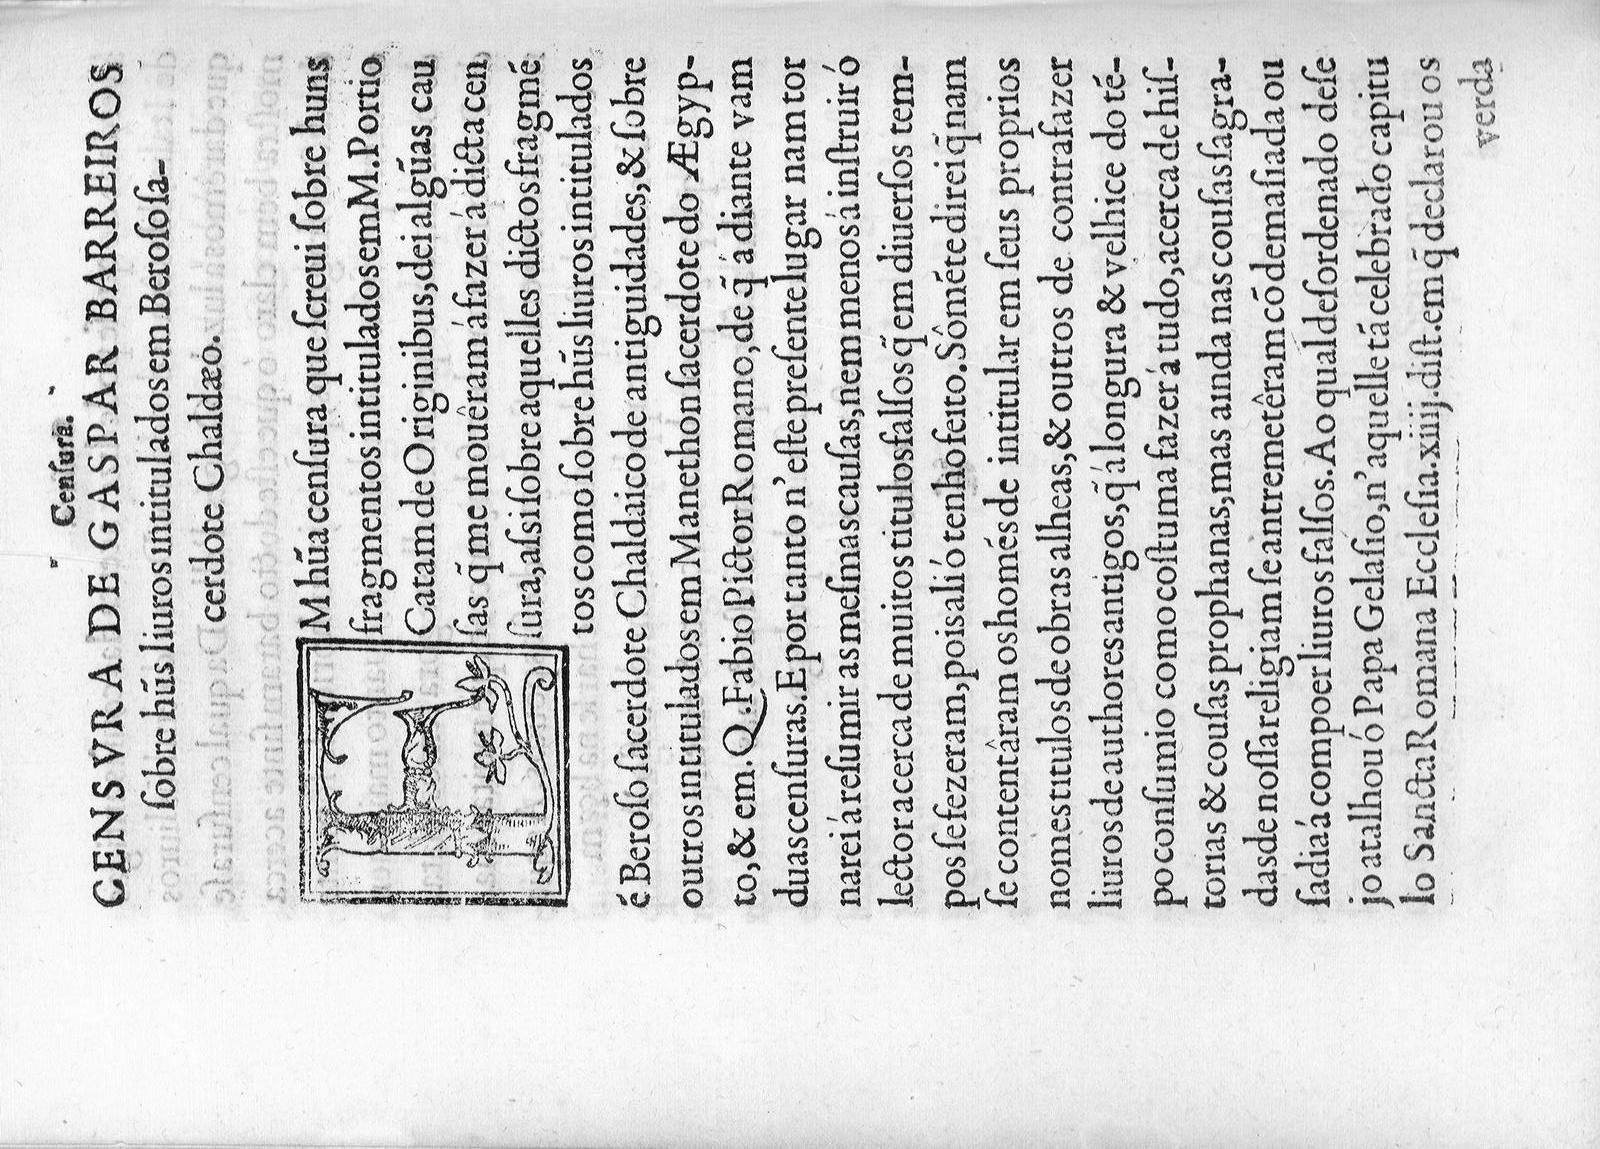 Cenſura.
CENSVRA DE GASPAR BARREIROS
ſobre hũs liuros intitulados em Beroſo ſa-
cerdote Chaldæo.
EM hũa cenſura que ſcreui ſobre huns
fragmentos intitulados em M. Portio
Catam de Originibus, dei algũas cau
ſas q̃ me mouêram á fazer á dicta cen
ſura, aſsi ſobre aquelles dictos fragmẽ
tos como ſobre hũs liuros intitulados
é Beroſo ſacerdote Chaldaico de antiguidades, & ſobre
outros intitulados em Manethon ſacerdote do Ægyp-
to, & em. Q. Fabio Pictor Romano, de q̃ á diante vam
duas cenſuras. E por tanto n'eſte preſente lugar nam tor
narei á reſumir as meſmas cauſas, nem menos á inſtruir ó
lector acerca de muitos titulos falſos q̃ em diuerſos tem-
pos ſe fezeram, pois ali ó tenho feito. Sômẽte direi q̃ nam
ſe contentâram os homẽs de intitular em ſeus proprios
nomes titulos de obras alheas, & outros de contrafazer
liuros de authores antigos, q̃ á longura & velhice do tẽ-
po conſumio como coſtuma fazer á tudo, acerca de hiſ-
torias & couſas prophanas, mas ainda nas couſas ſagra-
das de noſſa religiam ſe antremetêram cõ demaſiada ou
ſadia á compoer liuros falſos. Ao qual deſordenado deſe
jo atalhou ó Papa Gelaſio, n'aquelle tã celebrado capitu
lo Sancta Romana Eccleſia. xiiij. diſt. em q̃ declarou os
verda